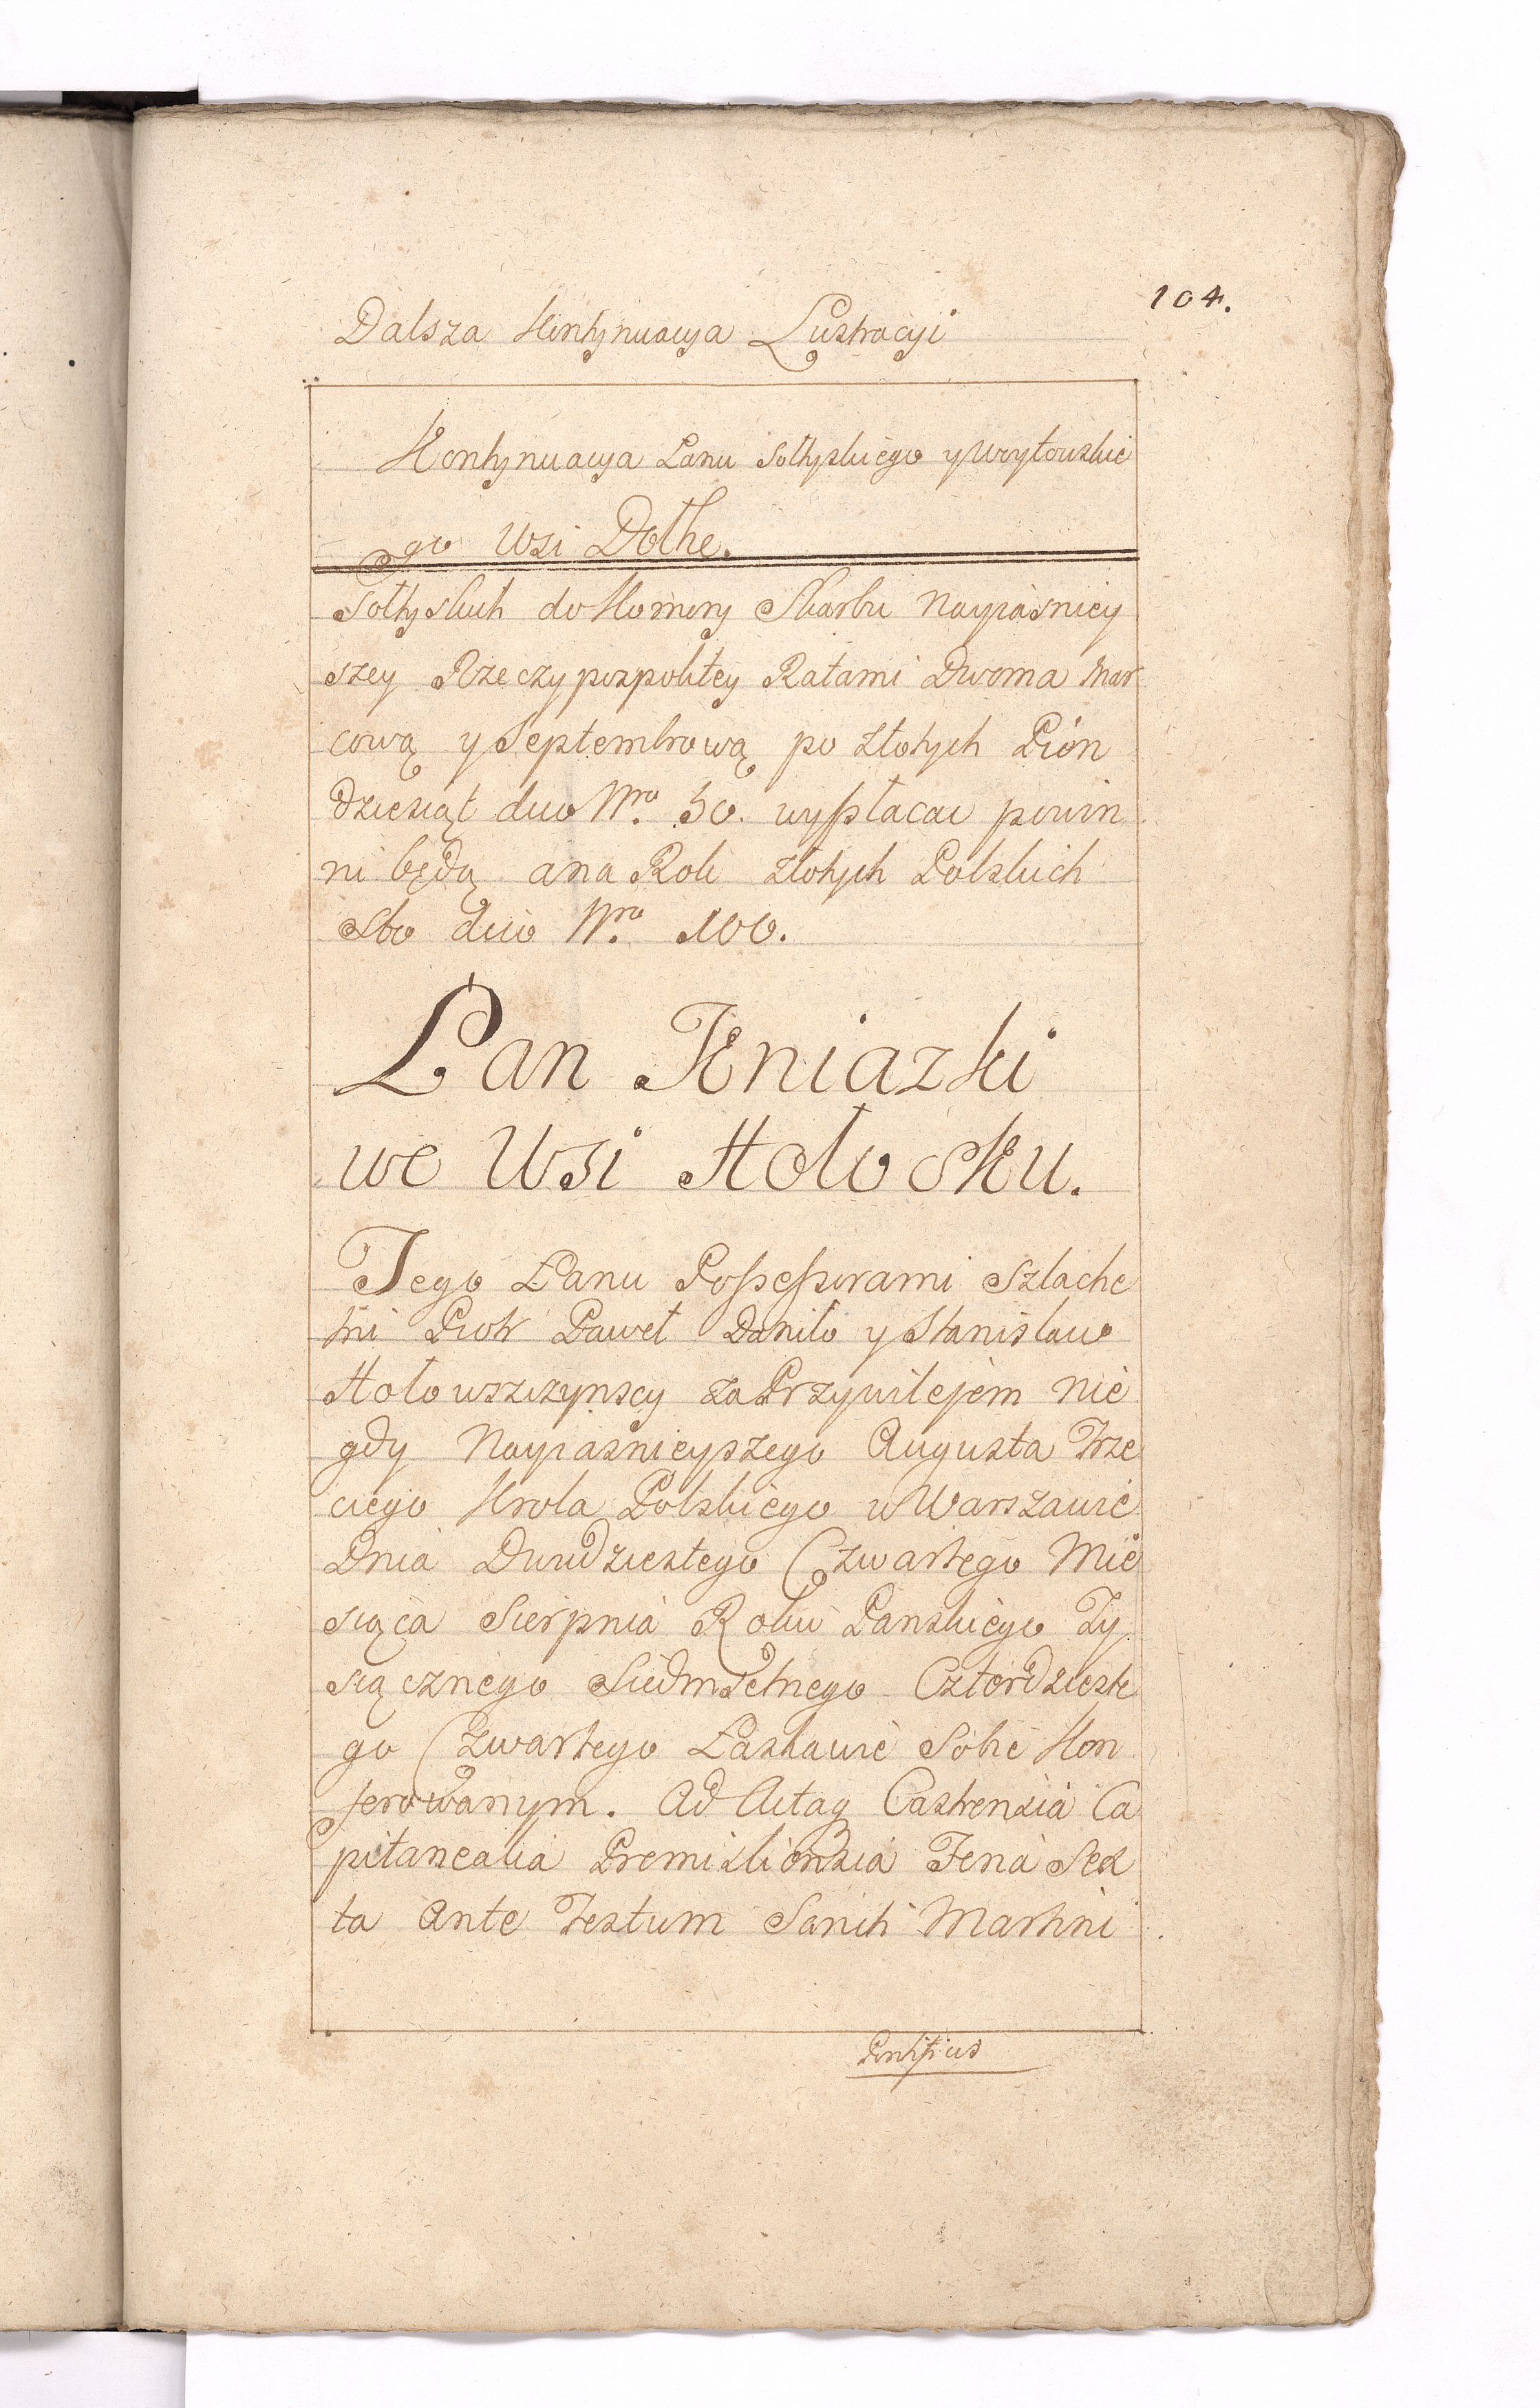 104.
Dalsza Kontynuacya Lustracyi
Kontynuacya Łanu Sołtyskiego y Wrytowskie
go Wsi Dołhe.
Sołtyskich do Kommory Skarbu Nayiaśniey
szey Rzeczypospolitey Ratami Dwoma Mar
cową y Septembrową po złotych Pión
dziesiąt dico Nro. 50. wypłacać powin
ni będą a na Rok złotych Polskich
Sto dico Nro. 100.
Łan Kniazki
we Wsi Hołosku.
Tego Łanu Possessorami Szlache
tni Piotr Paweł Daniło y Stanisław
Hołowszczynscy za Przywilejem nie
gdy Nayiasnieyszego Augusta Trze
ciego Krola Polskiego w Warszawie
Dnia Dwudziestego Czwartego Mie
siąca Sierpnia Roku Panskiego Ty
siącznego Siedmsetnego Czterdzieste
go Czwartego Łaskawie Sobie Kon
ferowanym. Ad Actaq Castrensia Ca
pitanealia Premisliensia Feria Sex
ta Ante Festum Sancti Martini
Pontificis